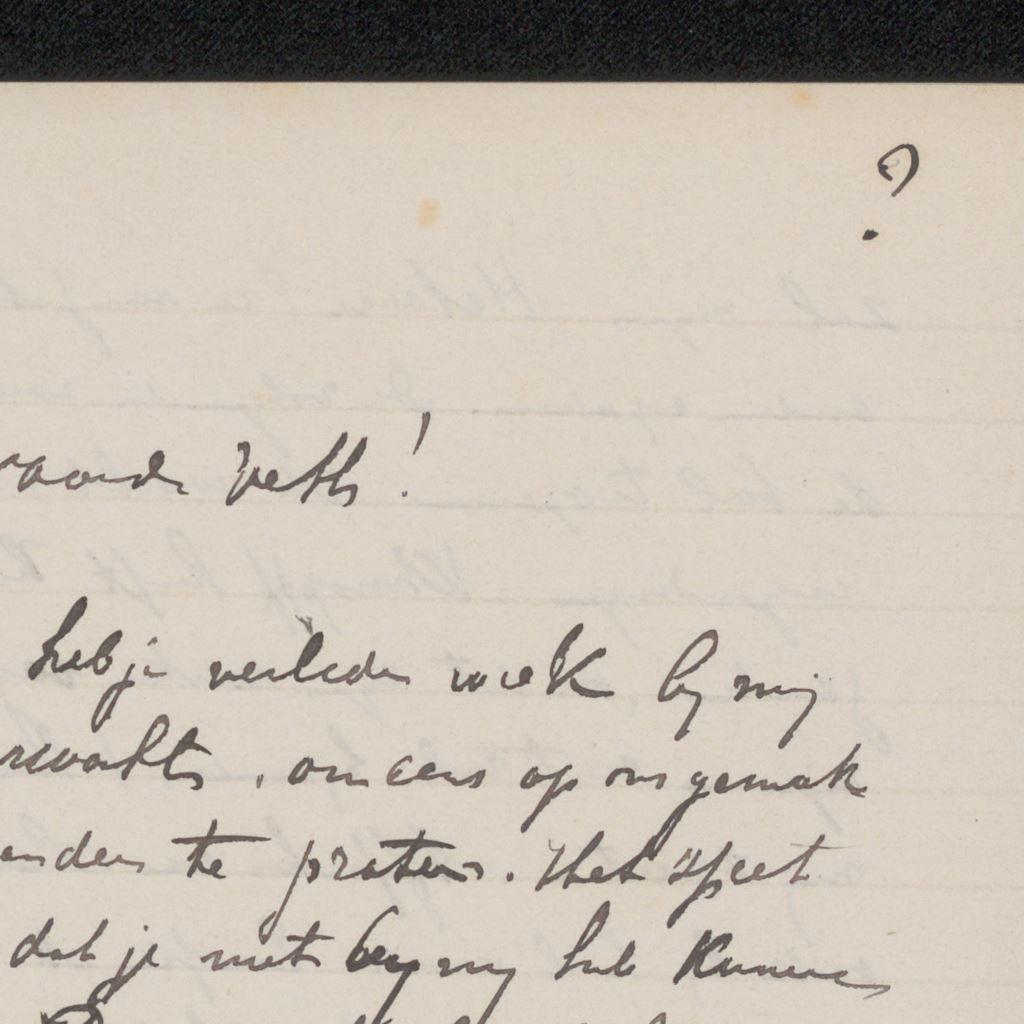 ?
waarde Veth!
heb je verleden week by mij
rwachts, om eens op ons gemak
anders te praten. Het speet
dat je niet by my heb kunnen